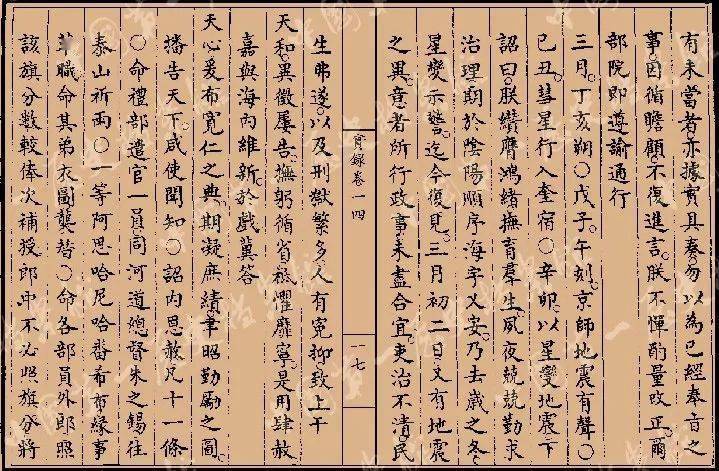 有未當者亦據實具奏勿以為已經奉旨之
事因循瞻顧不復進言朕不憚酌量改正爾
部院即遵諭通行
三月丁亥朔○戊子午刻京師地震有聲○
己丑彗星行入奎宿○辛卯以星變地震下
詔曰朕纘膺鴻緒撫育羣生夙夜兢兢勤求
治理期於陰陽順序海宇乂安乃去歲之冬
星變示警迄今復見三月初二日又有地震
之異意者所行政事未盡合宜吏治不清民
實錄卷一四
一七
生弗遂以及刑獄繁多人有冤抑致上干
天和異徵屢告撫躬循省祗懼靡寧是用肆赦
嘉與海內維新於戲冀答
天心爰布寬仁之典期凝庶績聿昭勤勵之圖
播告天下咸使聞知○詔內恩赦凡十一條
○命禮部遣官一員同河道總督朱之錫往
泰山祈雨○一等阿思哈尼哈番希布緣事
革職命其弟衣圖襲替○命各部員外郎照
該旗分數較俸次補授郎中不必照旗分將